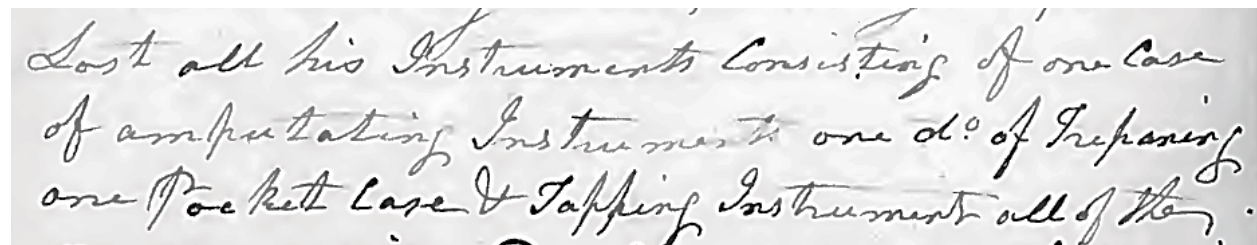 Lost all his Instruments Consisting of one Case
of amputating Instruments one do. of Trepaning
one Pocket Case & Tapping Instruments all of the